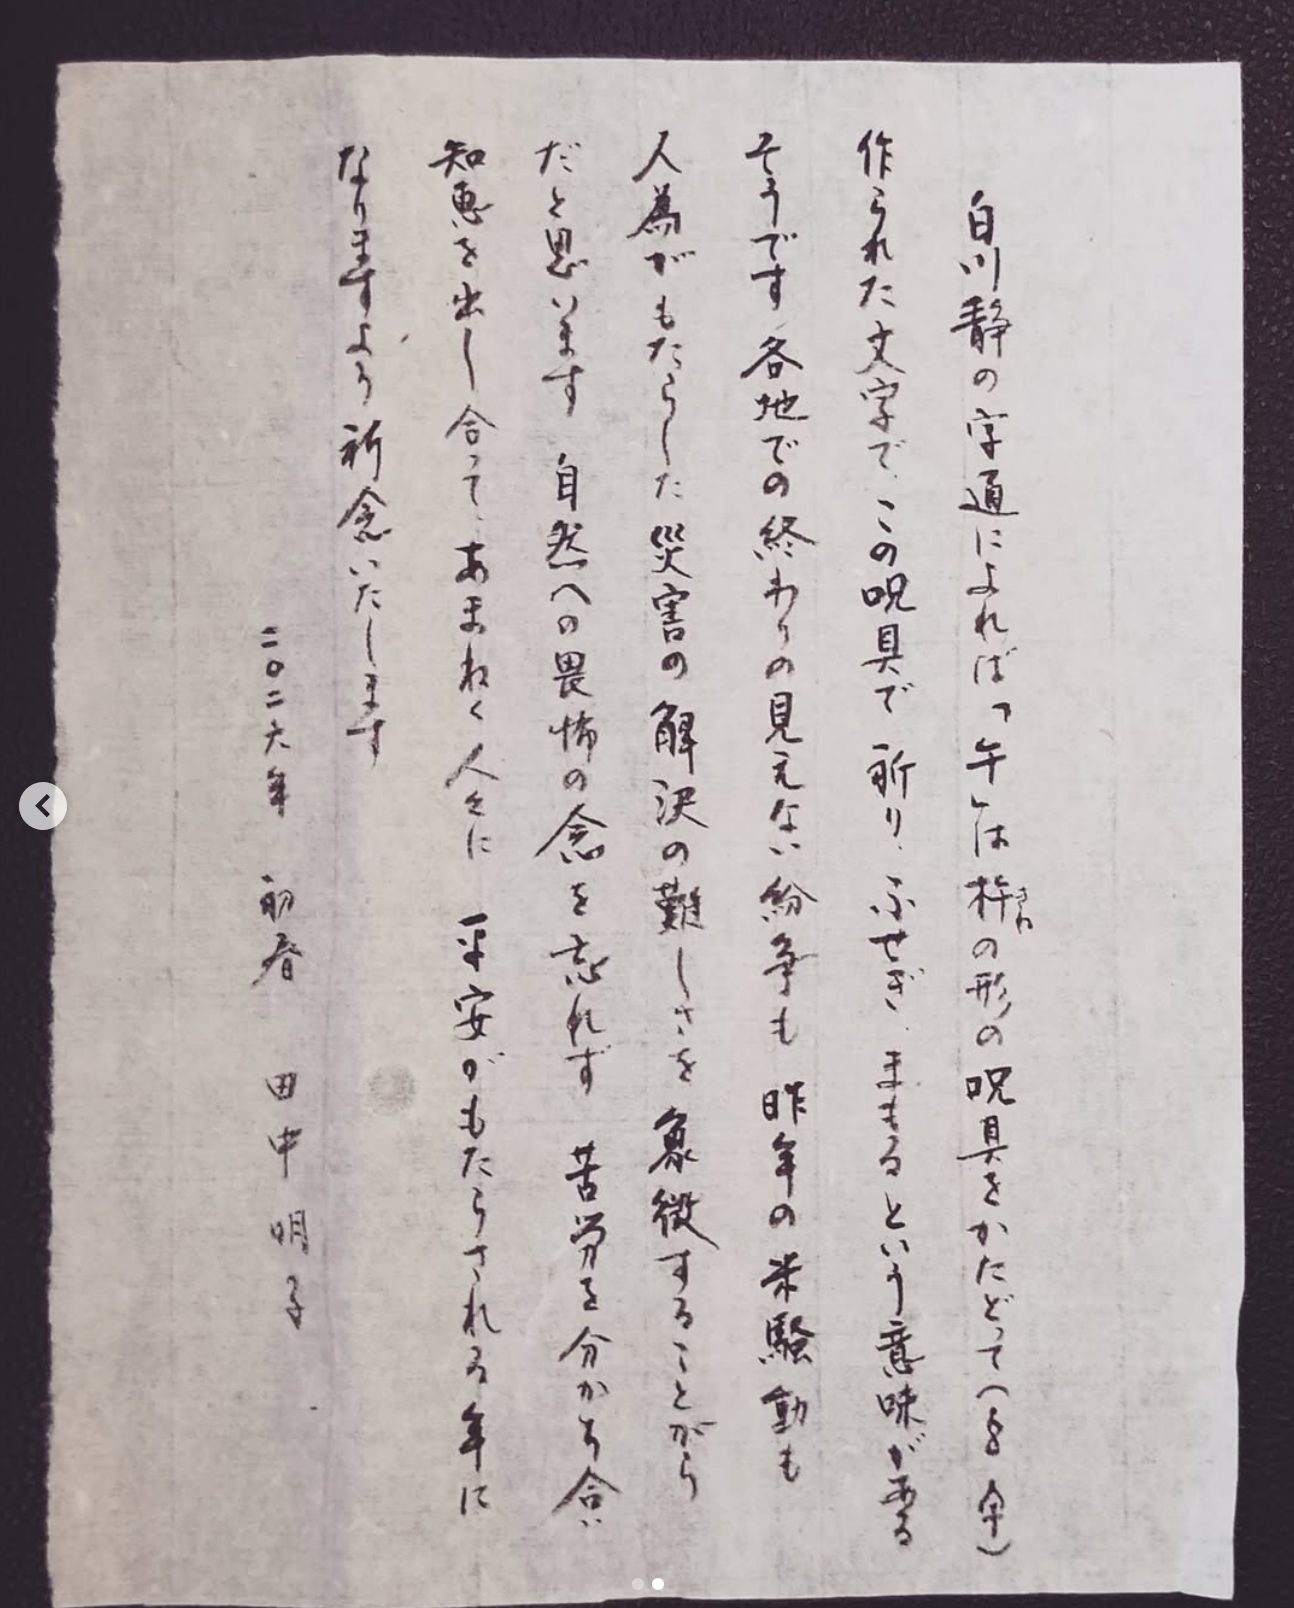 白川静の字通によれば「午」は杵の形の呪具をかたどって(
きね
作られた文字で、この呪具で祈り、ふせぎ、まもるという意味がある
そうです 各地での終わりの見えない紛争も 昨年の米騒動も
人為がもたらした災害の解決の難しさを象徴することがら
だと思います 自然への畏怖の念を忘れず 苦労を分かち合い
知恵を出し合って、あまねく人々に 平安がもたらされる年に
なりますよう祈念いたします
二〇二六年 初春 田中明子